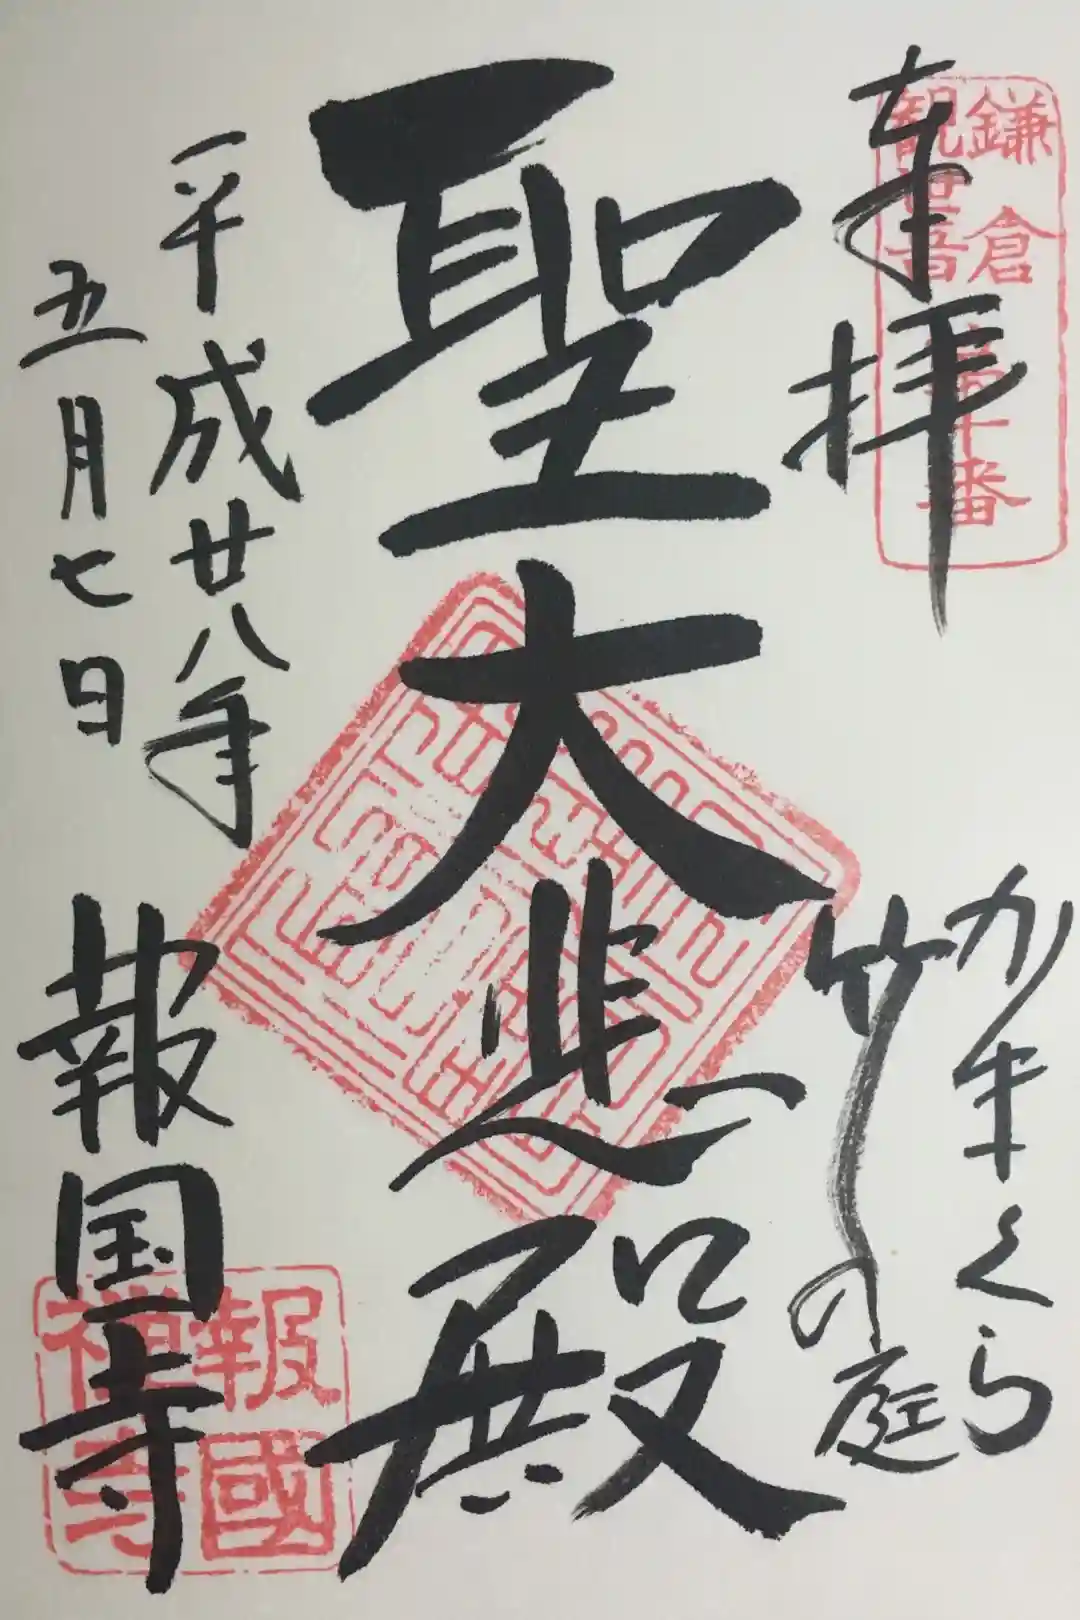 奉拝
鎌倉
観世音
第十番
かまくら
竹の庭
聖大悲殿
平成廿八年
五月七日
報国寺
報國
禅寺